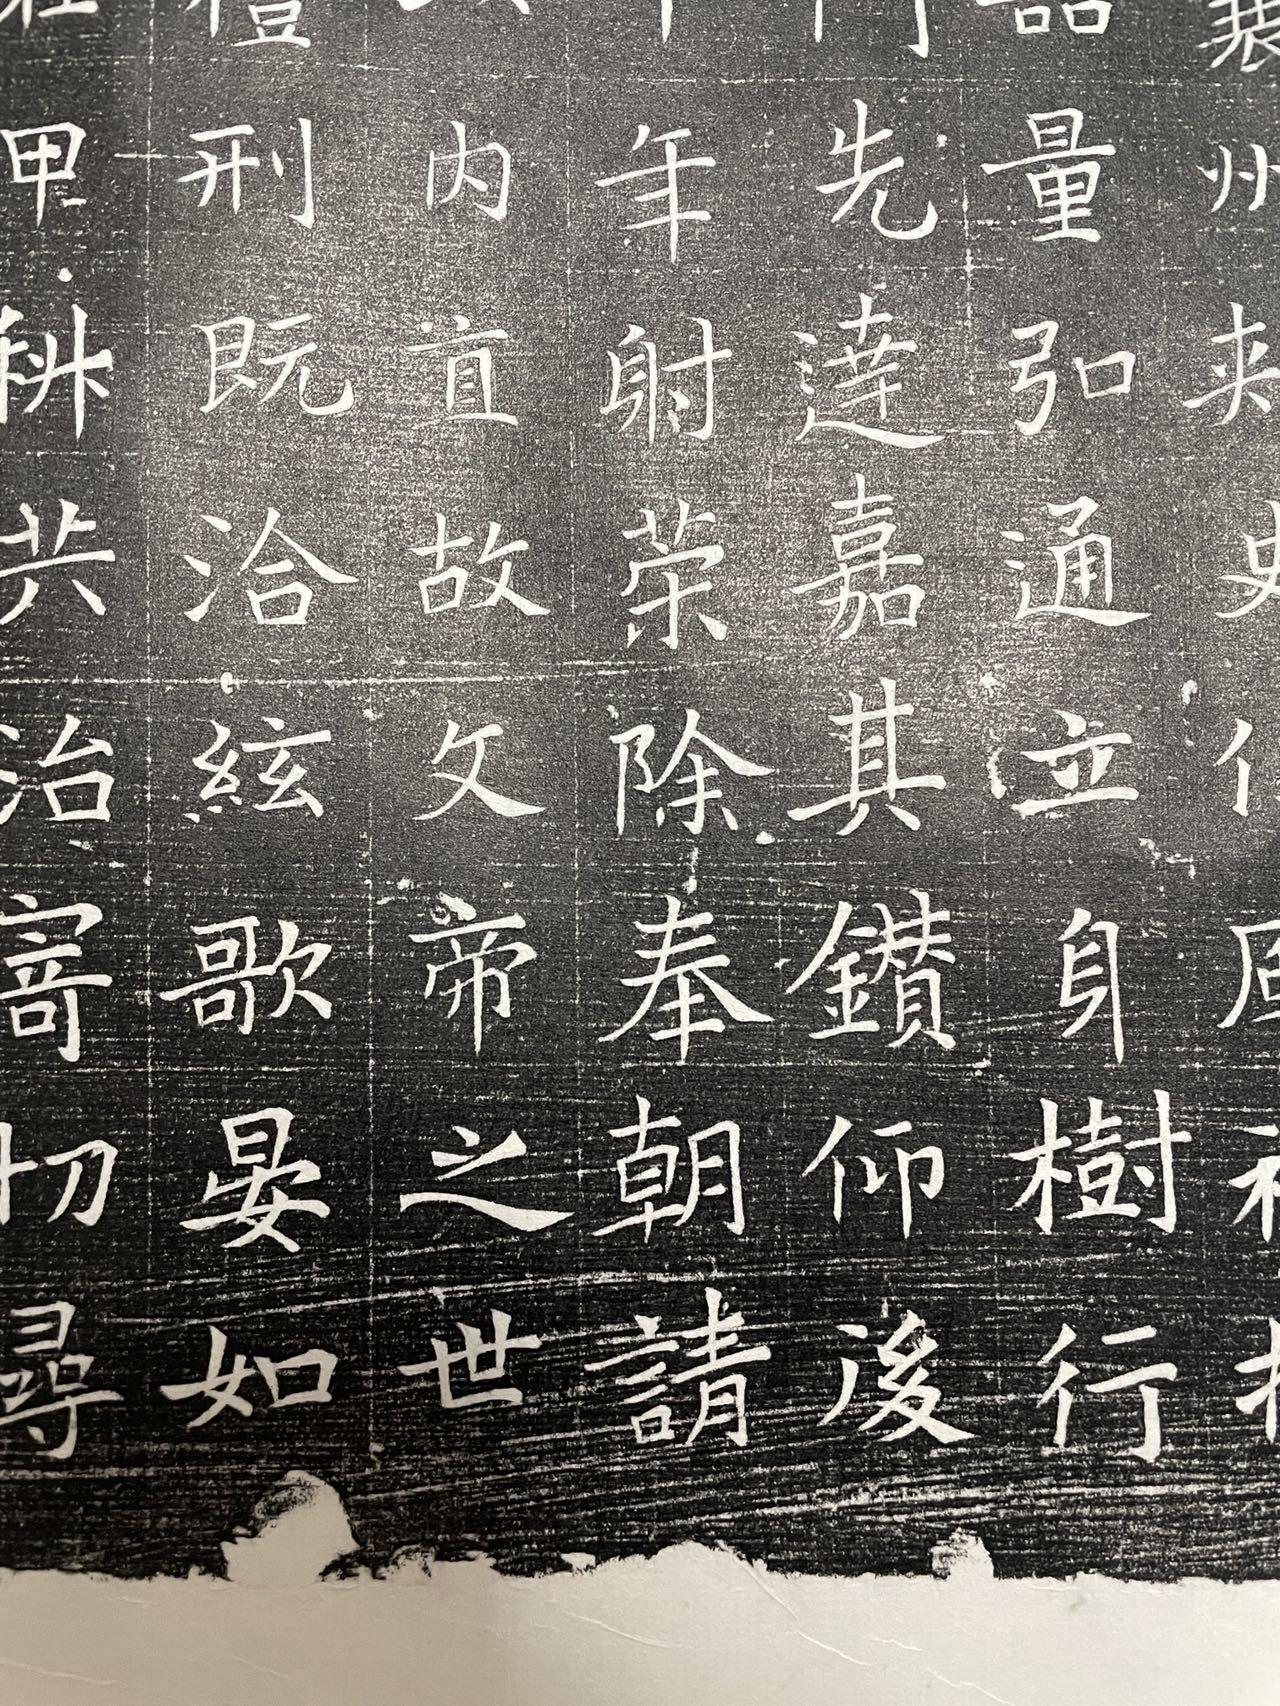 州夾史
量弘通立身樹行
先達嘉其鑽仰後
年射策除奉朝請
內直故文帝之世
禮刑既洽絃歌晏如
甲科共治寄切尋